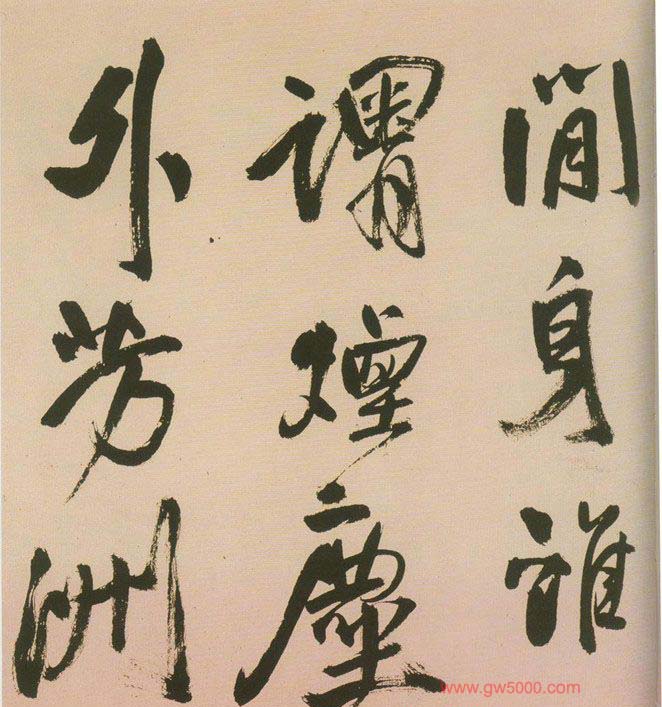 閒身誰
謂煙塵
外芳洲
www.gw5000.com